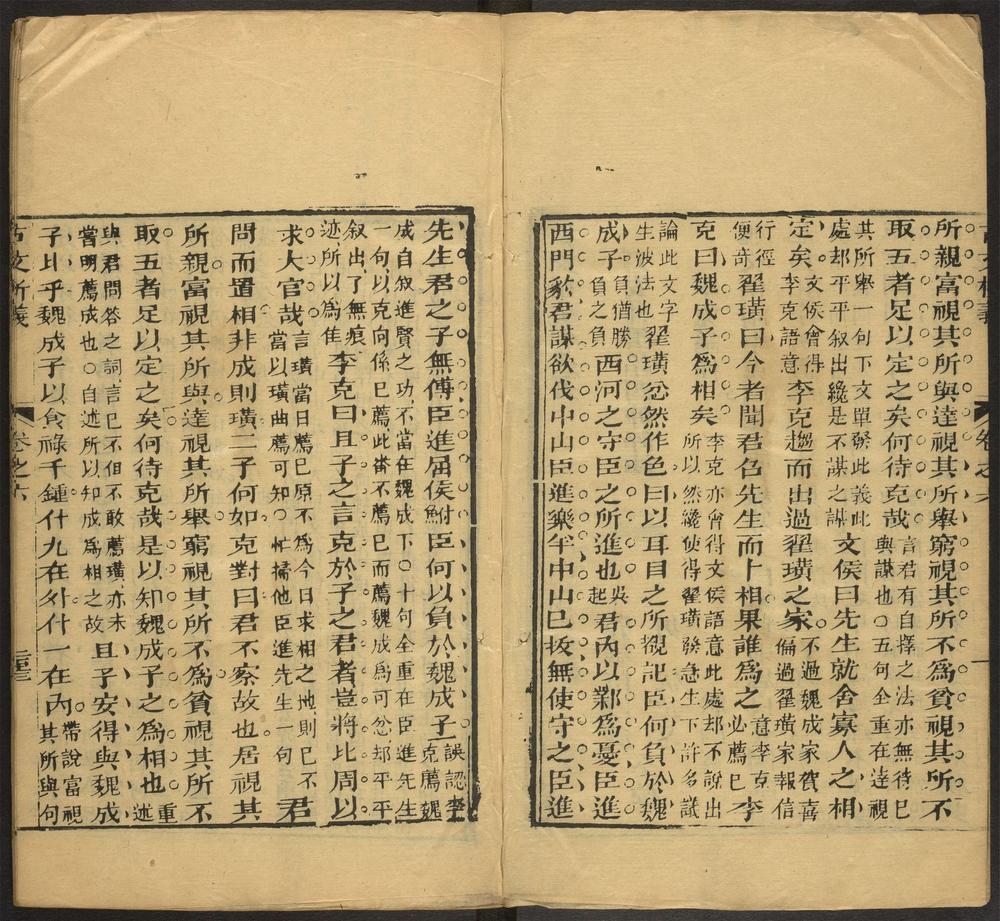 所親富視其所與達視其所舉窮視其所不爲貧視其所不
取五者足以定之矣何待克哉言君有自擇之法亦無待已與謀也○五句全重在達視
其所舉一句下文單發此義此處却平平叙出纔是不謀之謀文侯曰先生就舍寡人之相
定矣文侯會得李克語意李克趨而出過翟璜之家不過魏成家賀喜偏過翟璜家報信
行徑便奇翟璜曰今者聞君召先生而卜相果誰爲之意李克必薦已李
克曰魏成子爲相矣李克亦會得文侯語意此處却不說出所以然纔使得翟璜發急生下許多議
論此文字生波法也翟璜忿然作色曰以耳目之所覩記臣何負於魏
成子負猶勝負之負西河之守臣之所進也吳起君内以鄴爲憂臣進
西門豹君謀欲伐中山臣進樂羊中山已拔無使守之臣進
先生君之子無傅臣進屈侯鮒臣何以負於魏成子誤認李克薦魏
成自叙進賢之功不當在魏成下○十句全重在臣進先生一句以克向係已薦此畨不薦已而薦魏成爲可忿却平平
叙出了無痕迹所以爲隹李克曰且子之言克於子之君者豈將比周以
求大官哉言璜當日薦已原不爲今日求相之地則已不當以璜曲薦可知○忙揷他臣進先生一句君
問而置相非成則璜二子何如克對曰君不察故也居視其
所親富視其所與達視其所舉窮視其所不爲貧視其所不
取五者足以定之矣何待克哉是以知魏成子之爲相也重述
與君問答之詞言已不但不敢薦璜亦未嘗明薦成也○自述所以知成爲相之故且子安得與魏成
子比乎魏成子以食祿千鍾什九在外什一在内帶說富視其所與句
古文析義 卷之六